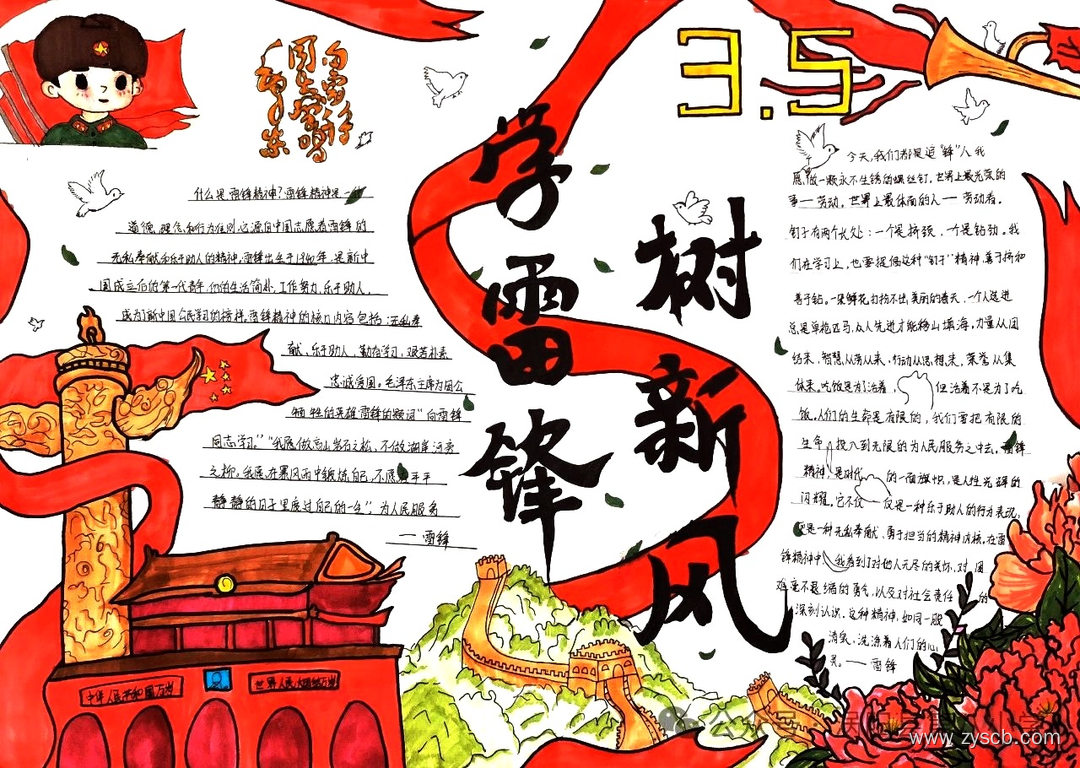 向雷锋
同志学习
毛泽东
3.5
学雷锋
树新风
什么是雷锋精神?雷锋精神是一种
道德、理念和行为准则,它源自中国志愿者雷锋的
无私奉献和乐于助人的精神,雷锋出生于1940年,是新中
国成立后的第一代青年,他的生活简朴,工作努力,乐于助人,
成为了新中国人民学习的榜样,雷锋精神的核心内容包括:无私奉
献、乐于助人、勤奋学习、艰苦朴素
忠诚爱国。毛泽东主席为因公
牺牲的英雄雷锋的题词"向雷锋
同志学习。""我愿做高山岩石之松,不做湖岸河旁
之柳,我愿在暴风雨中锻炼自己,不愿 平平
静静的日子里度过自己的一生"。为人民服务
——雷锋
今天,我们都是追"锋"人我
愿做一颗永不生锈的螺丝钉。世界上最光荣的
事——劳动。世界上最体面的人——劳动者。
钉子有两个长处:一个是挤劲,一个是钻劲。我
们在学习上,也要提倡这种"钉子"精神,善于挤和
善于钻。一朵鲜花打扮不出美丽的春天,一个人先进
总是单枪匹马,众人先进才能移山填海。力量从团
结来,智慧从劳从来,行动从思想来,荣誉从集
体来。吃饭是为了活着, 但活着不是为了吃
饭。人们的生命是有限的,我们要把有限的
生命 投入到无限的为人民服务之中去。雷锋
精神,是时代 的一面旗帜,是人性光辉的
闪耀,它不仅 仅是一种乐于助人的行为表现,
更是一种无私奉献、勇于担当的精神内核。在雷
锋精神中,我看到了对他人无尽的关怀,对 困
难毫不畏惧的勇气,以及对社会责任 的
深刻认识。这种精神,如同一股
清泉,洗涤着人们的心
灵。——雷锋
中华人民共和国万岁
世界人民大团结万岁
www.zyscb.com